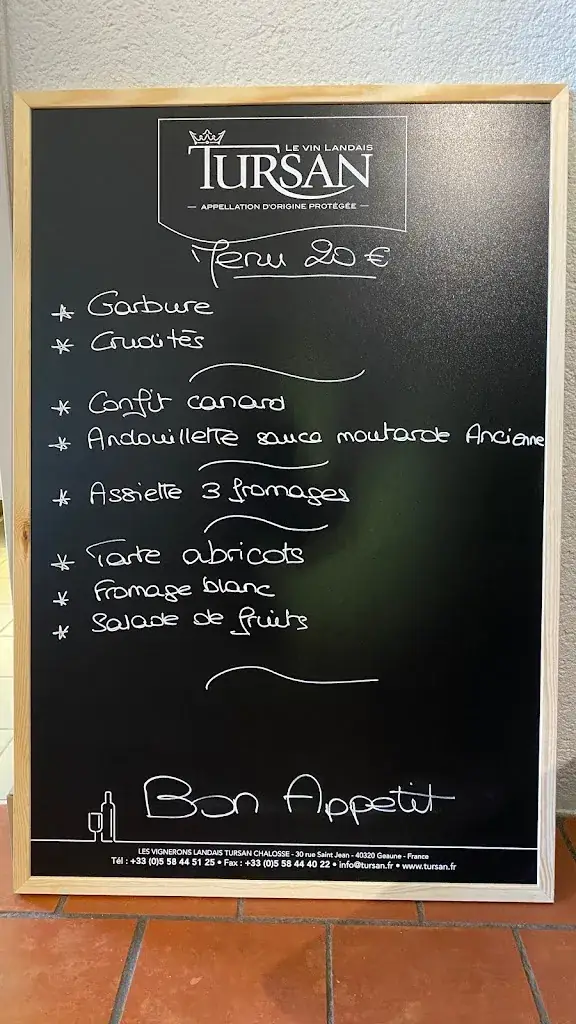 LE VIN LANDAIS
TURSAN
— APPELLATION D'ORIGINE PROTÉGÉE —
Menu 20 €
* Garbure
* Crudités
* Confit canard
* Andouillette sauce moutarde Ancienne
* Assiette 3 fromages
* Tarte abricots
* Fromage blanc
* Salade de fruits
Bon Appétit
LES VIGNERONS LANDAIS TURSAN CHALOSSE - 30 rue Saint Jean - 40320 Geaune - France
Tél : +33 (0)5 58 44 51 25 • Fax : +33 (0)5 58 44 40 22 • info@tursan.fr • www.tursan.fr